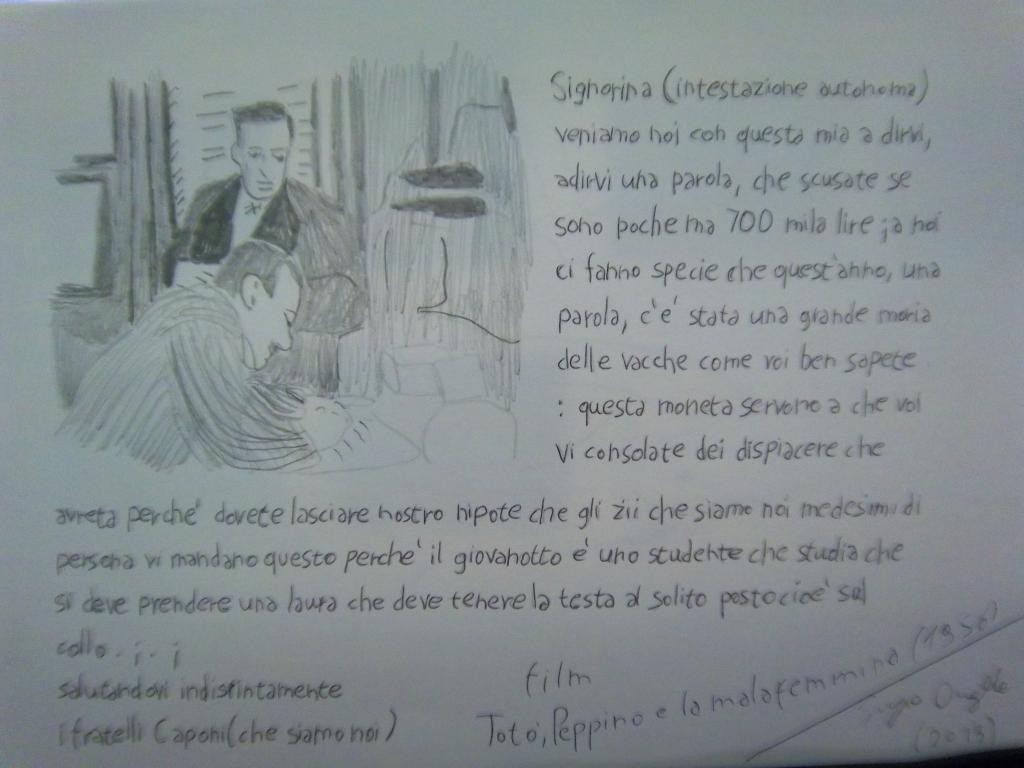 Signorina (intestazione autonoma)
veniamo noi con questa mia a dirvi,
adirvi una parola, che scusate se
sono poche ma 700 mila lire ; a noi
ci fanno specie che quest'anno, una
parola, c'e' stata una grande moria
delle vacche come voi ben sapete
: questa moneta servono a che voi
vi consolate dei dispiacere che
avreta perche' dovete lasciare nostro nipote che gli zii che siamo noi medesimi di
persona vi mandano questo perche' il giovanotto e' uno studente che studia che
si deve prendere una laura che deve tenere la testa al solito posto cioe' sul
collo . ; . ;
salutandovi indistintamente
i fratelli Caponi (che siamo noi)
film
Totò, Peppino e la malafemmina (1956)
(2023)